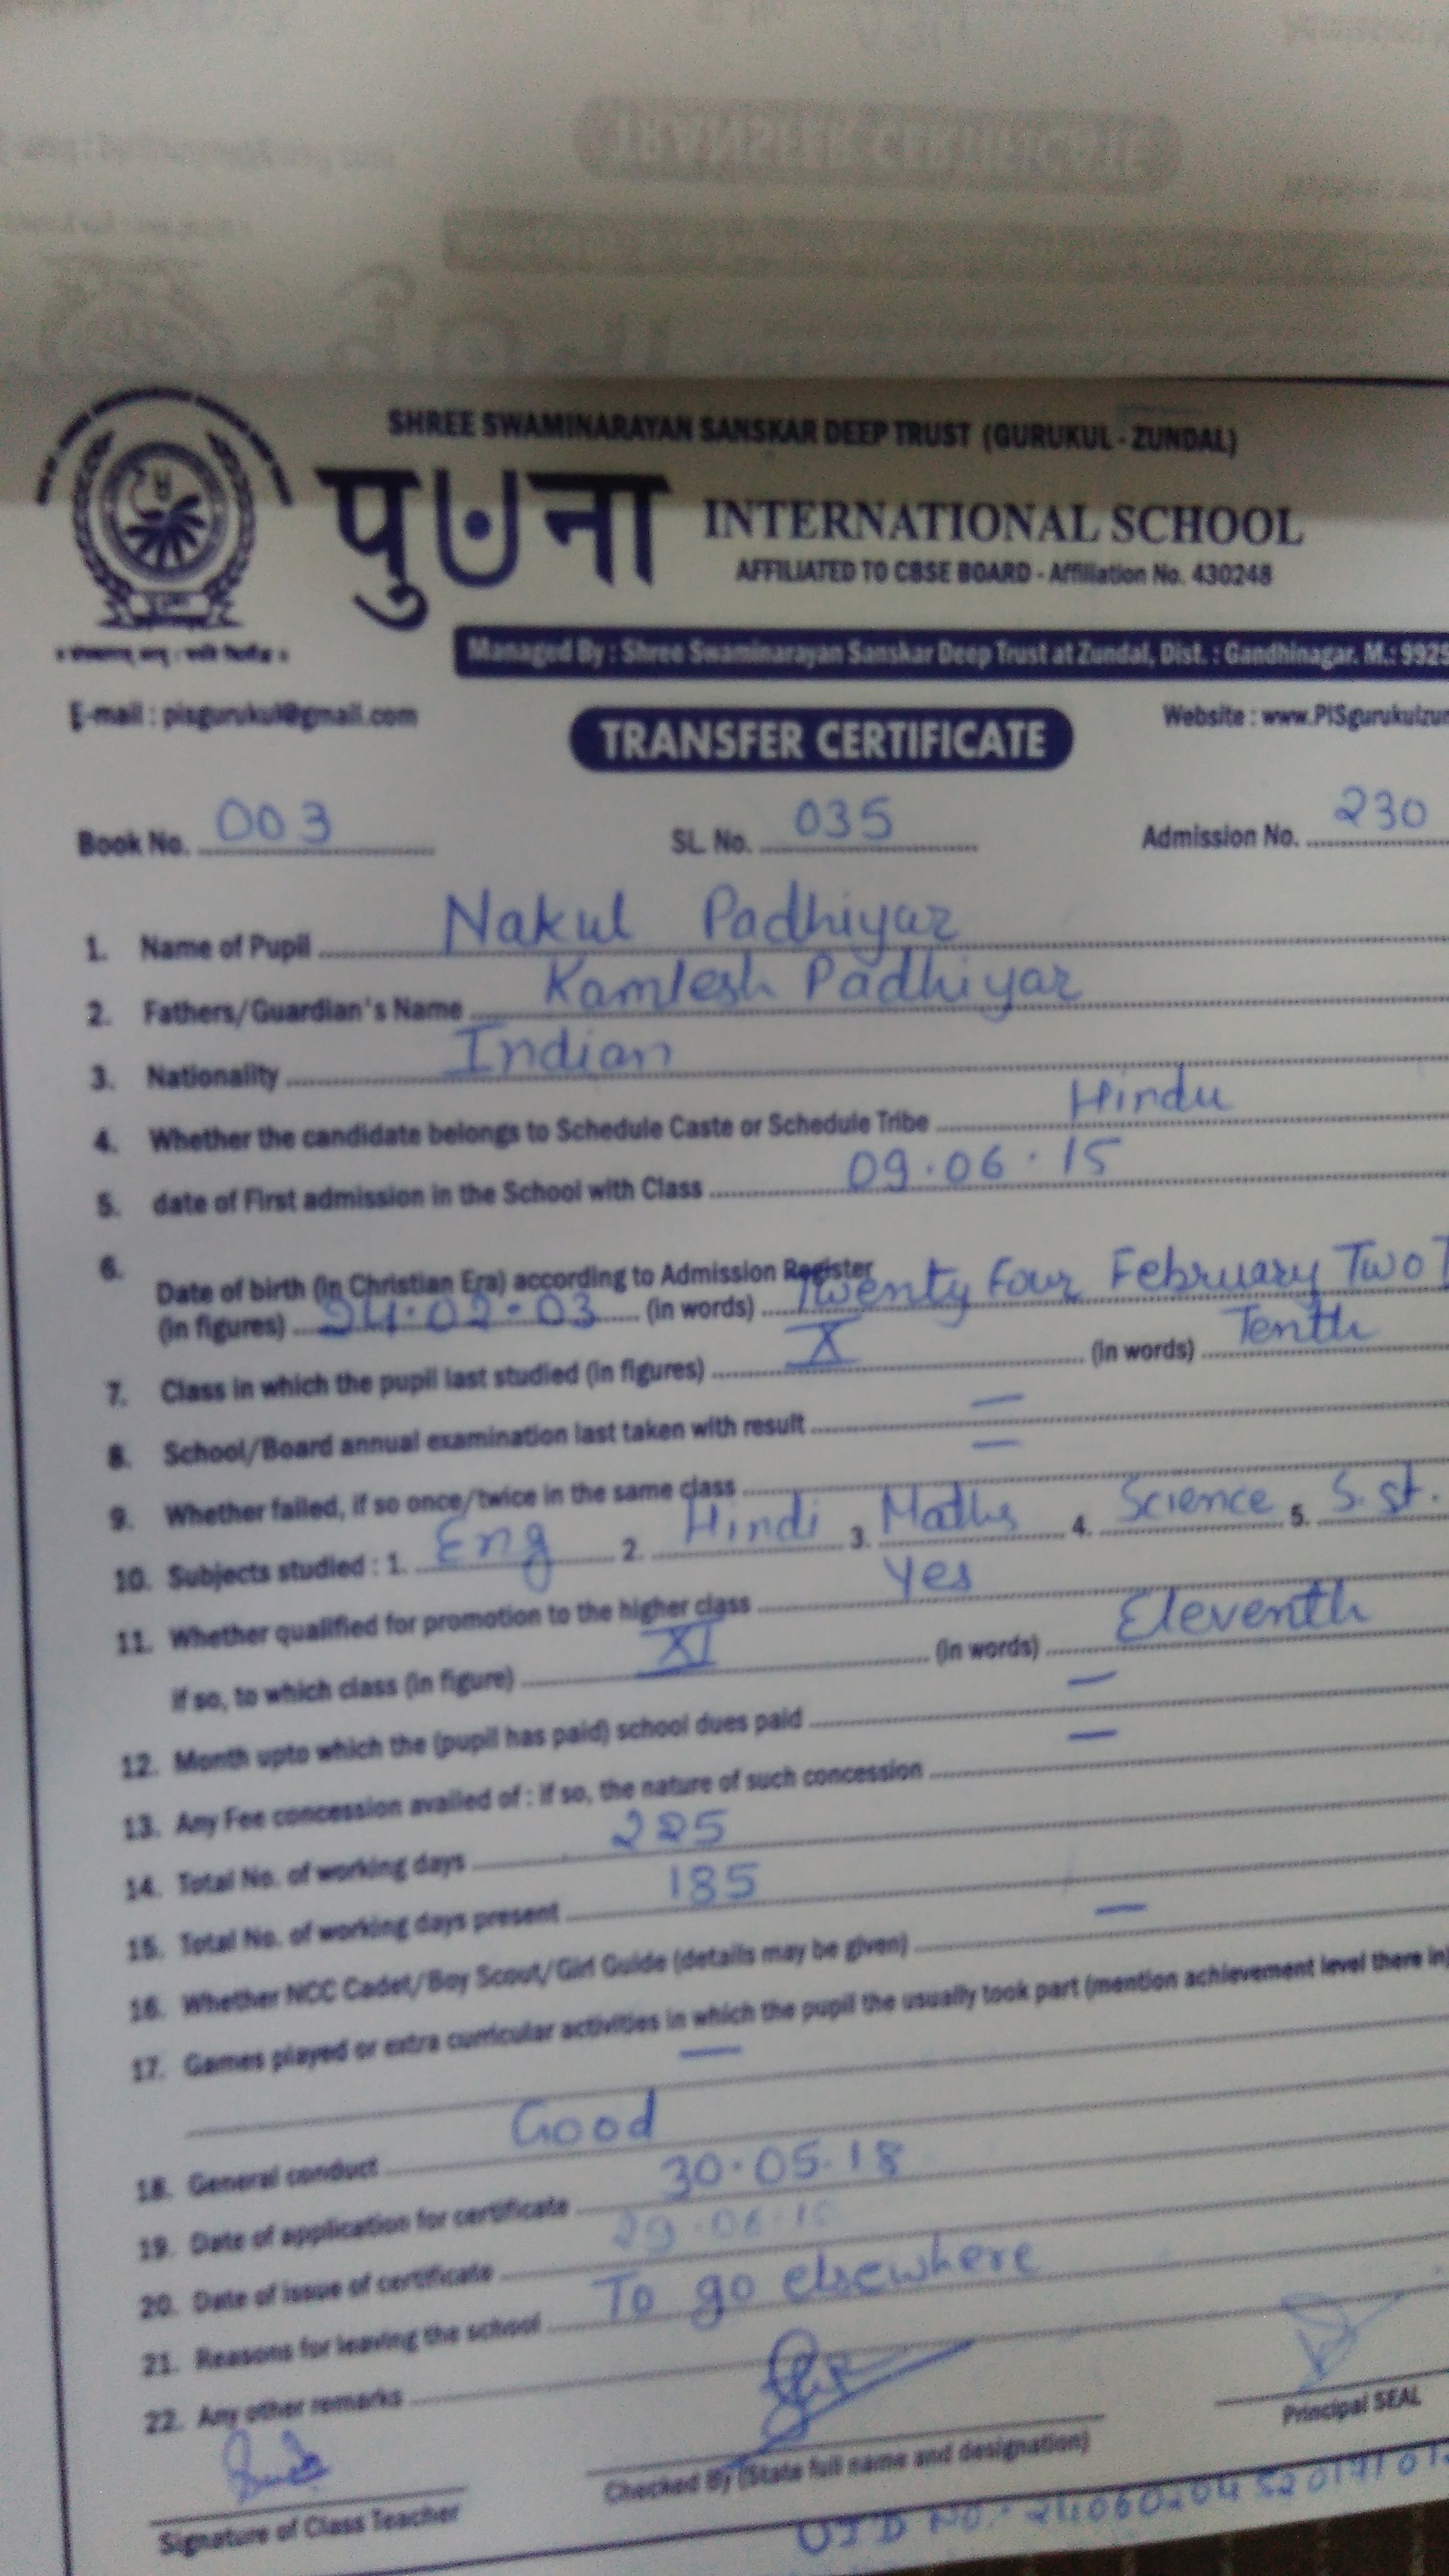 SHREE SWAMINARAYAN SANSKAR DEEP TRUST (GURUKUL - ZUNDAL)
पुना INTERNATIONAL SCHOOL
AFFILIATED TO CBSE BOARD - Affiliation No. 430248
Managed By : Shree Swaminarayan Sanskar Deep Trust at Zundal, Dist. : Gandhinagar. M.: 9925
E-mail : pisgurukul@gmail.com TRANSFER CERTIFICATE Website : www.PISgurukulzun
Book No. 003 SL. No. 035 Admission No. 230
1. Name of Pupil Nakul Padhiyar
2. Fathers/Guardian's Name Kamlesh Padhiyar
3. Nationality Indian
4. Whether the candidate belongs to Schedule Caste or Schedule Tribe Hindu
5. date of First admission in the School with Class 09.06.15
6. Date of birth (in Christian Era) according to Admission Register
(in figures) 24.02.03 (in words) Twenty Four February Two T
7. Class in which the pupil last studied (in figures) X (in words) Tenth
8. School/Board annual examination last taken with result —
9. Whether failed, if so once/twice in the same class —
10. Subjects studied : 1. Eng 2. Hindi 3. Maths 4. Science 5. S.st.
11. Whether qualified for promotion to the higher class Yes
if so, to which class (in figure) XI (in words) Eleventh
12. Month upto which the (pupil has paid) school dues paid —
13. Any Fee concession availed of : if so, the nature of such concession —
14. Total No. of working days 225
15. Total No. of working days present 185
16. Whether NCC Cadet/Boy Scout/Girl Guide (details may be given) —
17. Games played or extra curricular activities in which the pupil the usually took part (mention achievement level there in)
—
18. General conduct Good
19. Date of application for certificate 30.05.18
20. Date of issue of certificate
21. Reasons for leaving the school To go elsewhere
22. Any other remarks
Signature of Class Teacher Checked By (State full name and designation) Principal SEAL
UID NO.: